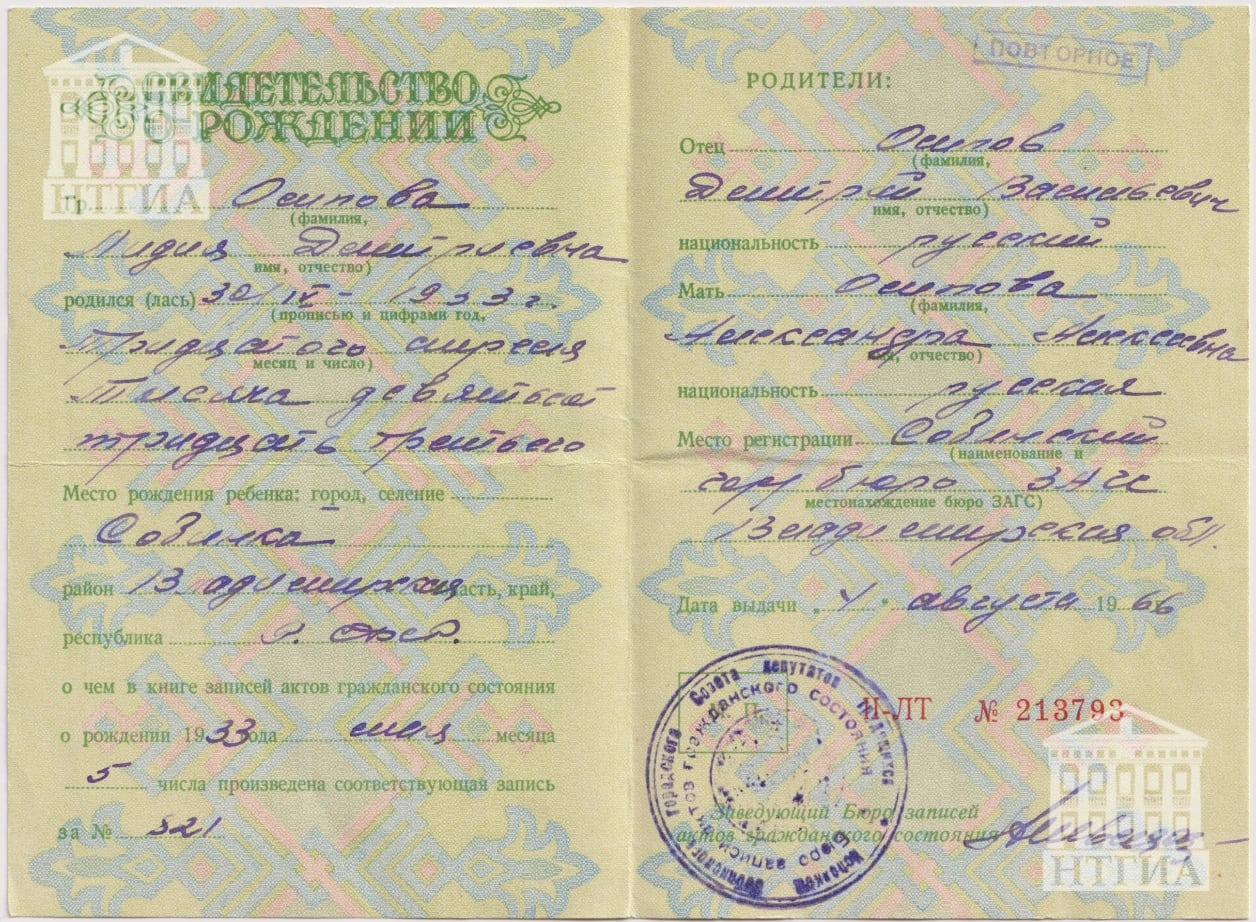 СВИДЕТЕЛЬСТВО
О РОЖДЕНИИ
НТГИА
Гр. Осипова
(фамилия,
Лидия Дмитриевна
имя, отчество)
родился (лась) 30/IV - 1933 г.
(прописью и цифрами год,
Тридцатого апреля
месяц и число)
Тысяча девятьсот
тридцать третьего
Место рождения ребенка: город, селение
Собинка
район Владимирская область, край,
республика РСФСР.
о чем в книге записей актов гражданского состояния
о рождении 1933 года мая месяца
5 числа произведена соответствующая запись
за № 521
ПОВТОРНОЕ
РОДИТЕЛИ:
Отец Осипов
(фамилия,
Дмитрий Васильевич
имя, отчество)
национальность русский
Мать Осипова
(фамилия,
Александра Алексеевна
имя, отчество)
национальность русская
Место регистрации Собинский
(наименование и
гор бюро ЗАГС
местонахождение бюро ЗАГС)
Владимирская обл.
Дата выдачи „4" августа 1966
М. П.
II-ЛТ № 213793
Заведующий Бюро записей
актов гражданского состояния
городского Совета депутатов трудящихся
Исполком
Бюро записи актов гражданского состояния
НТГИА